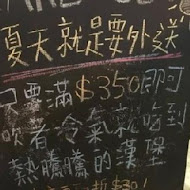 夏天就是要外送
只要滿$350即可
吹著冷氣就吃到
熱騰騰的漢堡